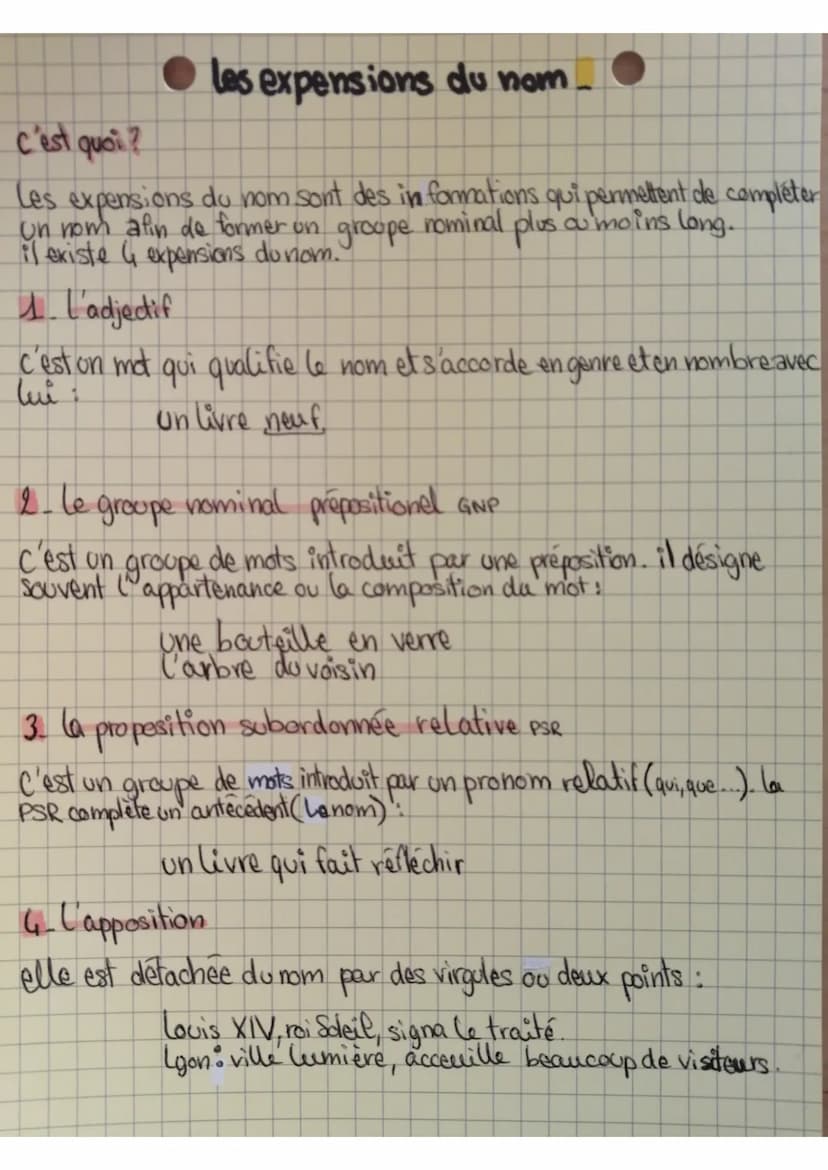 les expensions du nom_
c'est quoi?
Les expensions du nom sont des informations qui permettent de compléter
un nom afin de former un groupe nominal plus ou moins long.
il existe 4 expensions du nom.
1_ L'adjectif
c'est un mot qui qualifie le nom et s'accorde en genre et en nombre avec
lui :
un livre neuf
2_ Le groupe nominal prépositionel GNP
c'est un groupe de mots introduit par une préposition. il désigne
souvent l'appartenance ou la composition du mot :
une bouteille en verre
l'arbre du voisin
3_ la proposition subordonnée relative PSR
C'est un groupe de mots introduit par un pronom relatif (qui, que...). la
PSR complète un antécédent (Le nom) :
un livre qui fait réfléchir
4_ L'apposition
elle est détachée du nom par des virgules ou deux points :
Louis XIV, roi Soleil, signa le traité.
Lyon : ville lumière, acceuille beaucoup de visiteurs.